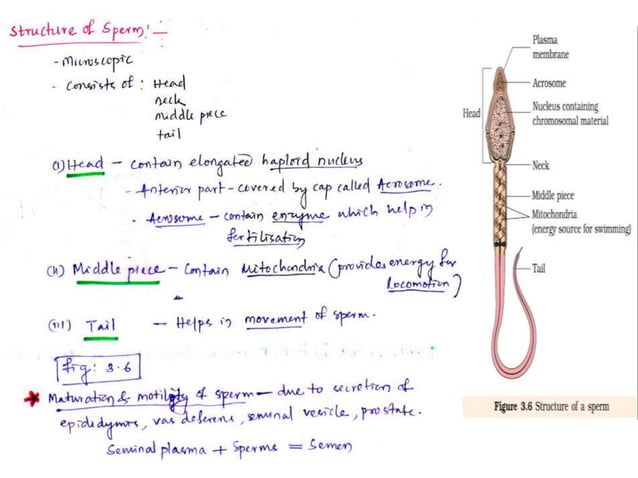 Structure of Sperm:-
- Microscopic
- consists of : Head
neck
middle piece
tail
(i) Head - contain elongated haploid nucleus
- Anterior part - covered by cap called Acrosome.
- Acrosome - contain enzyme which help in
fertilisation
(ii) Middle piece - contain Mitochondria (provides energy for
locomotion)
(iii) Tail - Helps in movement of sperm.
Fig: 3.6
* Maturation & motility of sperm - due to secretion of
epididymis, vas deferens, seminal vesicle, prostate.
Seminal plasma + Sperms = Semen
Plasma
membrane
Acrosome
Head
Nucleus containing
chromosomal material
Neck
Middle piece
Mitochondria
(energy source for swimming)
Tail
Figure 3.6 Structure of a sperm